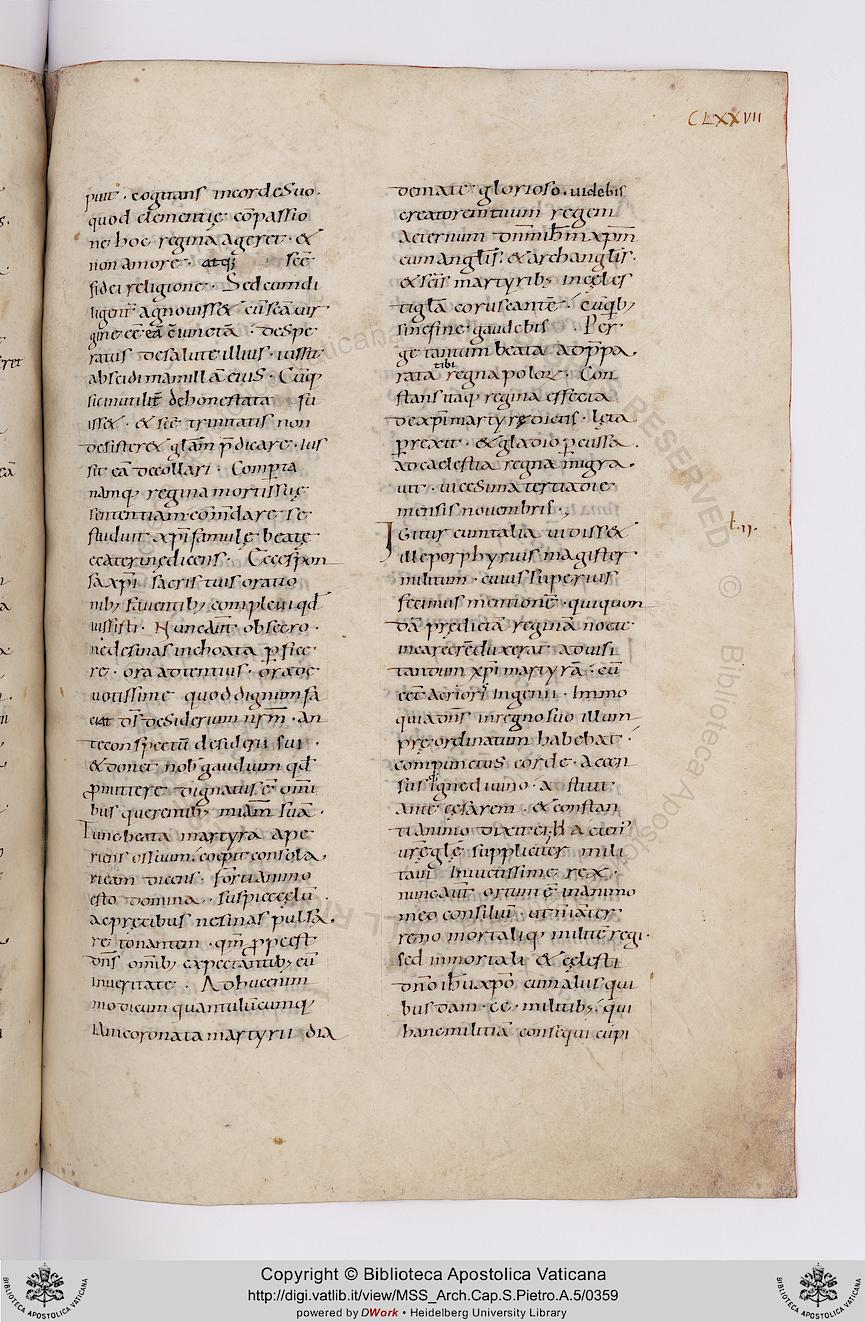 CLXXVII
puit · cogitans in corde suo ·
quod clementię cōpassio
ne hoc regina ageret · &
non amore · atq; scę
fidei religione · Sed cum di
ligent agnouiss& cū scā uir
gine eē eā c̄iunctā · despe
ratus de salute illius · iussit
abscidi mamillā eius · Cūq;
sic mutilit dehonestata fu
iss& · & scē trinitatis non
desister& glam p̄dicare · ius
sit eā decollari · Comperta
namq; regina mortis suę
sententiam com̄dare se
studuit xp̄i famulę beatę
ecaterinę dicens · Ecce spon
sa xp̄i sacris tuis oratio
nib; fauentib; compleui qđ
iussisti · Nunc aūt obsecro ·
ne desinas inchoata p̄ficę
re · ora adtentius · ora de
uotissime quod dignum fa
ciat d̄s desiderium nr̄m · an
te conspectū desiderii sui ·
& donet nob̄ gaudium qđ
p̄mittere dignatus ē om̄i
bus querentib; miam̄ suā ·
Tunc beata martyra ape
riens ostium · coepit consola
ricam dicens · forti animo
esto domina · suspice cęlū ·
ac precibus ne sinas pulsa
re tonantem · qm̄ p̄pe est
dn̄s om̄ib; expectantib; eū
in ueritate · Adhuc enim
modicum quantulūcumq;
iam coronata martyrii dia
demate glorioso · uidebis
creatorem tuum regem
aeternum dn̄m ih̄m xp̄m
cum anglis̄ · & archanglis̄ ·
& scīs martyrib; in cęles
ti glā coruscantē · cū q̄b;
sine fine gaudebis · Per
ge tantum beata ad p̄pa
rata tibi regna poloꝝ · Con
stans itaq; regina effecta
de xp̄i martyrę dictis · lęta
p̄rexit · & gladio p̄cussa ·
ad caelestia regna migra
uit · uicesima tertia die
mensis nouembris ·,
IGitur cum talia uidiss&
ille porphyrius magister
militum · cuius superius
fecimus mentionē · qui quon
dā prędictā reginā nocte
in carcerē duxerat · ad uisi
tandum xp̄i martyrā · cū
eēt acriori ingenii · Immo
quia dn̄s in regno suo illum
pręordinatum habebat ·
compunctus corde · accen
susq; igne diuino · adstitit
ante cęsarem · & constan
ti animo dixit ei · Hactenꝰ
urę̄ glę̄ suppliciter mili
taui Inuictissime rex ·
nunc aūt ortum ē in animo
meo consiliū · ut mīaterꝰ
remo mortaliq; militē regi ·
sed inmortali & cęlesti
dn̄o ih̄u xp̄o cum aliis qui
busdam · eē militib; · qui
hanc militiā consequi cupi
t. ij.
Copyright © Biblioteca Apostolica Vaticana
http://digi.vatlib.it/view/MSS_Arch.Cap.S.Pietro.A.5/0359
powered by DWork • Heidelberg University Library